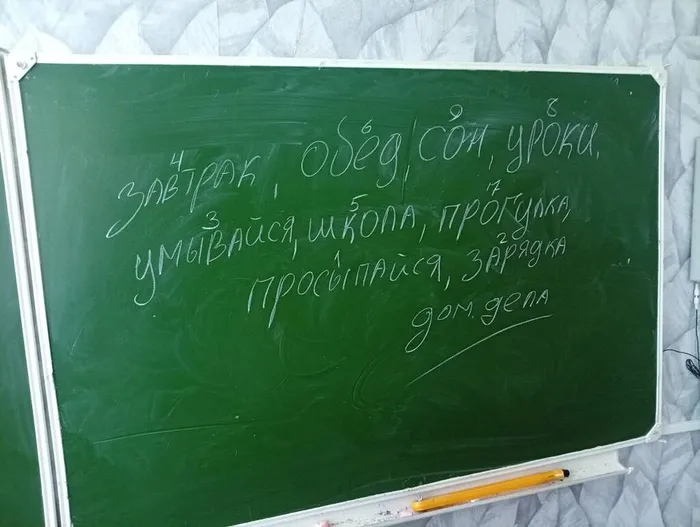 4 6 9 8
завтрак, обед, сон, уроки,
3 5 7
умывайся, школа, прогулка,
1 2
просыпайся, зарядка
дом. дела